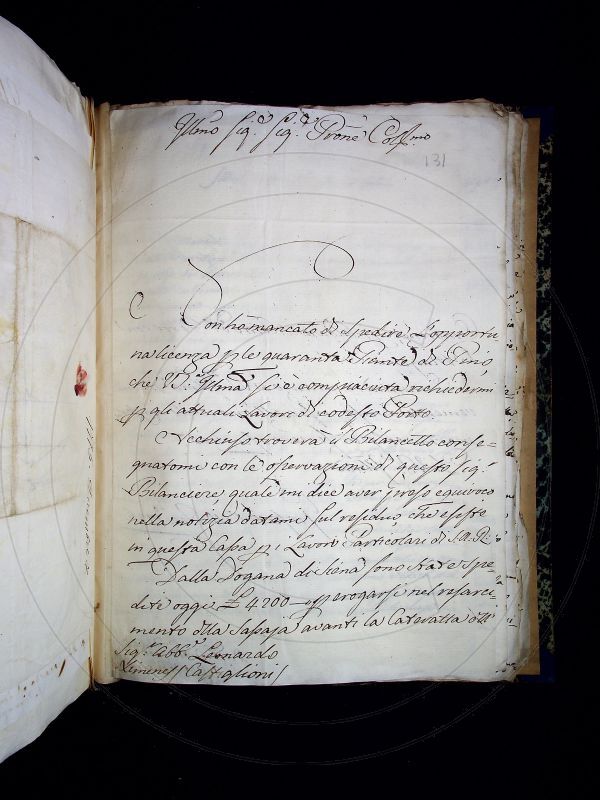 Illmo Sig.r Sig.r Prone Colmo
131
Non ho mancato di spedire l'opportu
na licenza p le quaranta Piante di Pino,
che V.S. Illma si è compiaciuta richiedermi
p gli attuali Lavori di codesto Porto.
Acchiuso troverà il Bilancello conse-
gnatomi con le osservazioni di questo Sig.r
Bilanciere, quale mi dice aver preso equivoco
nella notizia datami sul residuo, che esiste
in questa Cassa p i Lavori Particolari di S.A.R.
Dalla Dogana di Siena sono state spe
dite oggi £ 4200 — p erogarsi nel risarci
mento della Sassaja avanti la Cateratta
Sig.r Abb.e Leonardo
Ximenes / Castiglioni /